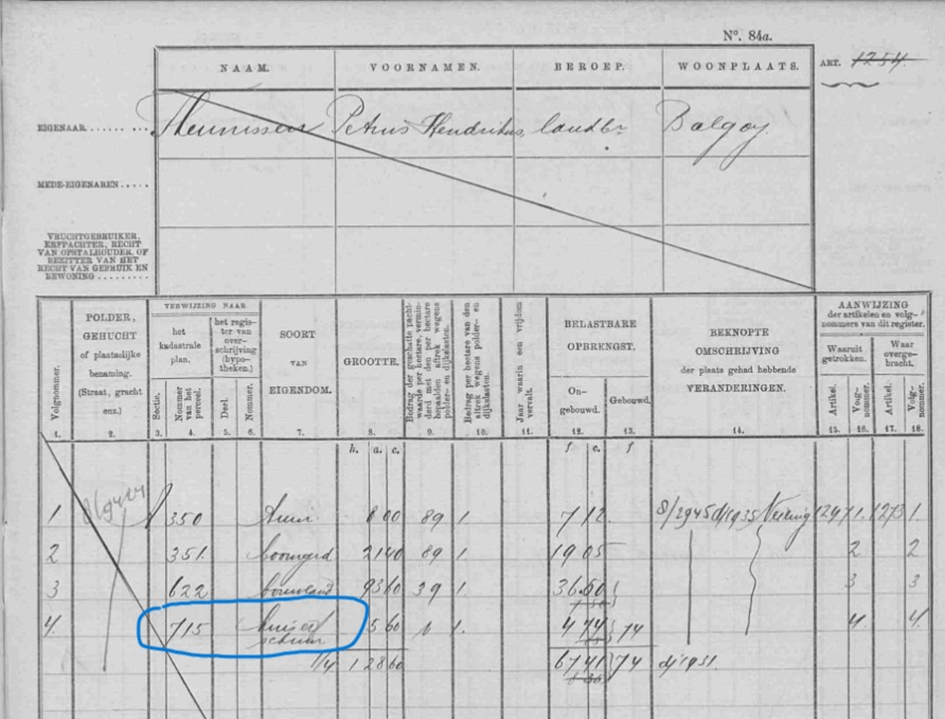 N°. 84a.
NAAM. VOORNAMEN. BEROEP. WOONPLAATS. ART. 1254.
EIGENAAR Theunissen Petrus Hendrikus landbr Balgoy
MEDE-EIGENAREN
VRUCHTGEBRUIKER,
ERFPACHTER, RECHT
VAN OPSTALHOUDER, OF
BEZITTER VAN HET
RECHT VAN GEBRUIK EN
BEWONING
Volgnommer.
POLDER,
GEHUCHT
of plaatselijke
benaming.
(Straat, gracht
enz.)
VERWIJZING NAAR
het
kadastrale
plan.
het regis-
ter van
over-
schrijving
(hypo-
theken.)
Sectie.
Nommer
van het
perceel.
Deel.
Nommer.
SOORT
VAN
EIGENDOM.
GROOTTE.
Bedrag der geschatte pacht-
waarde per hectare, vermin-
derd met den per hectare
bepaalden aftrek wegens
polder- en dijkslasten.
Bedrag per hectare van den
aftrek wegens polder- en
dijkslasten.
Jaar waarin een vrijdom
vervalt.
BELASTBARE
OPBRENGST.
On-
gebouwd.
Gebouwd.
BEKNOPTE
OMSCHRIJVING
der plaats gehad hebbende
VERANDERINGEN.
AANWIJZING
der artikelen en volg-
nommers van dit register.
Waaruit
getrokken.
Waar
overge-
bracht.
Artikel.
Volg-
nommer.
Artikel.
Volg-
nommer.
1. 2. 3. 4. 5. 6. 7. 8. 9. 10. 11. 12. 13. 14. 15. 16. 17. 18.
h. a. c. f c. f
1 350 8 00 89 1. 7 12. 1. 1273 1.
2 351 boomgrd 21 40 89 1. 19 05 2 2
3 622 bouwland 93 60 39 1. 36.50 3 3
4. 715 huis en 5 60 1. 4 74 74 4 4.
schuur
1 28 60 67 41 74 dj 1931.